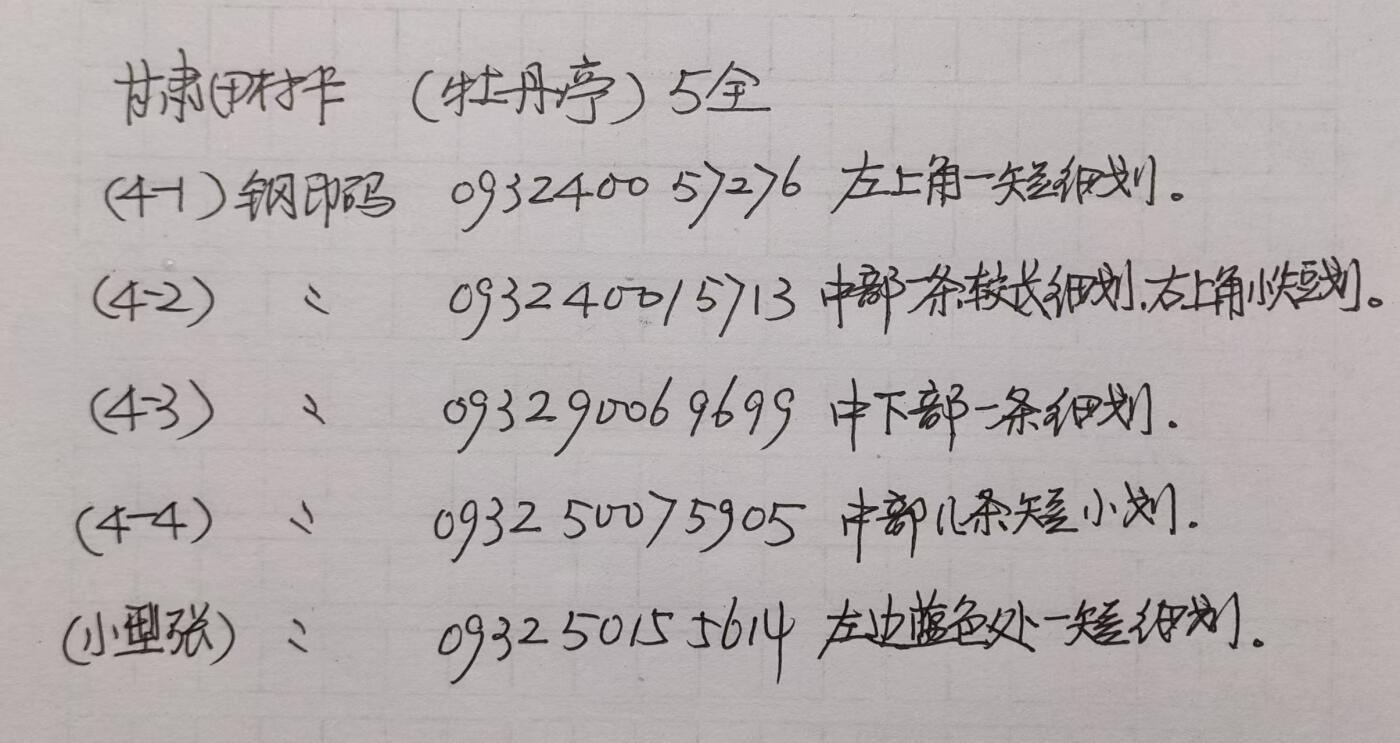 甘肃田村卡 (牡丹亭) 5全
(4-1) 钢印码 093240057276 左上角一短细划。
(4-2) 〃 093240015713 中部一条较长细划,右上角小短划。
(4-3) 〃 093290069699 中下部一条细划.
(4-4) 〃 093250075905 中部几条短小划.
(小型张) 〃 093250155614 左边蓝色处一短细划。